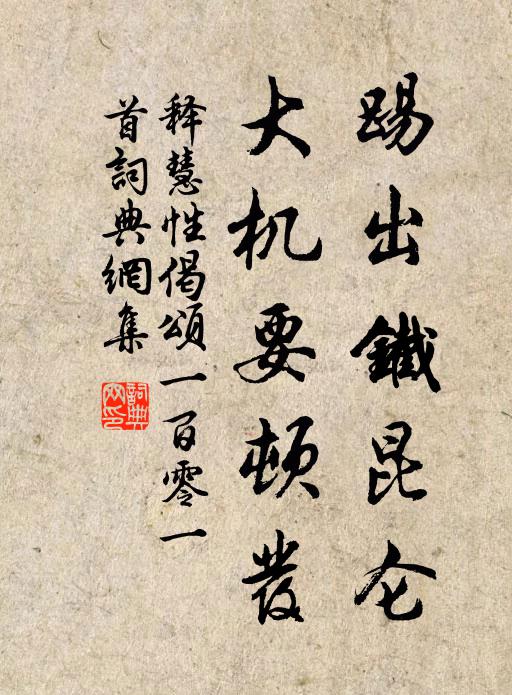 踢出鐵昆仑
大机要顿發
释慧性偈頌一百零一
首詞典網集
詞典網印